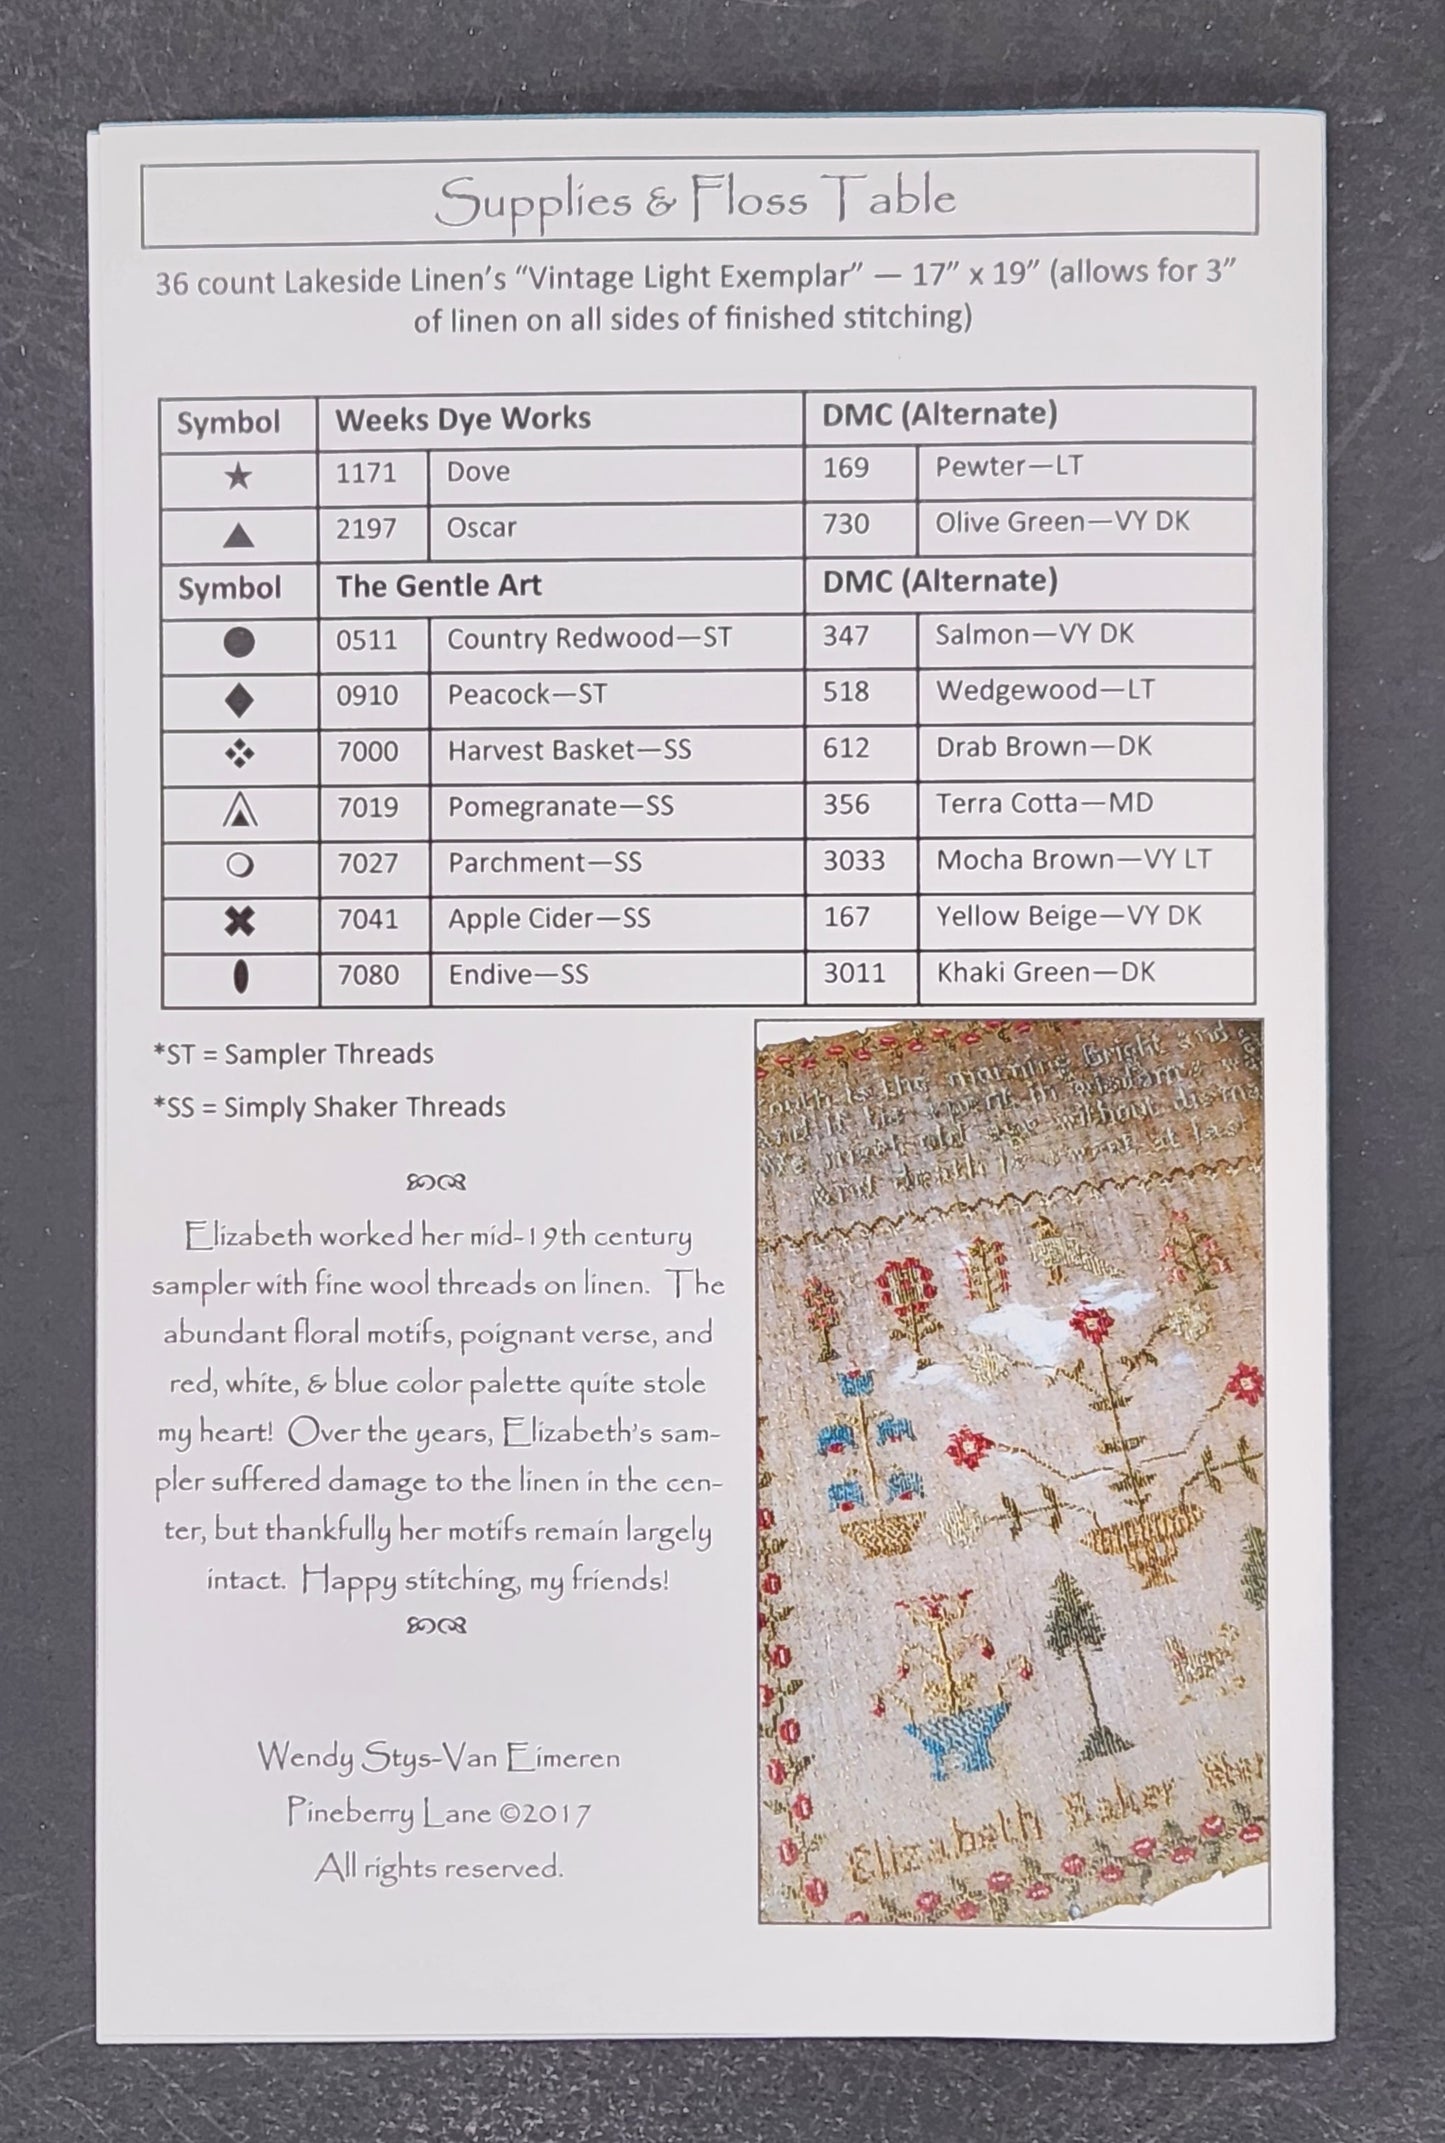 Supplies & Floss Table
36 count Lakeside Linen's "Vintage Light Exemplar" — 17" x 19" (allows for 3"
of linen on all sides of finished stitching)
Symbol Weeks Dye Works DMC (Alternate)
★ 1171 Dove 169 Pewter—LT
▲ 2197 Oscar 730 Olive Green—VY DK
Symbol The Gentle Art DMC (Alternate)
0511 Country Redwood—ST 347 Salmon—VY DK
0910 Peacock—ST 518 Wedgewood—LT
7000 Harvest Basket—SS 612 Drab Brown—DK
7019 Pomegranate—SS 356 Terra Cotta—MD
7027 Parchment—SS 3033 Mocha Brown—VY LT
7041 Apple Cider—SS 167 Yellow Beige—VY DK
7080 Endive—SS 3011 Khaki Green—DK
*ST = Sampler Threads
*SS = Simply Shaker Threads
Elizabeth worked her mid-19th century
sampler with fine wool threads on linen. The
abundant floral motifs, poignant verse, and
red, white, & blue color palette quite stole
my heart! Over the years, Elizabeth's sam-
pler suffered damage to the linen in the cen-
ter, but thankfully her motifs remain largely
intact. Happy stitching, my friends!
Wendy Stys-Van Eimeren
Pineberry Lane ©2017
All rights reserved.
the morning bright and
and it be spent in
meet old age without
And death is at last
Elizabeth Baker